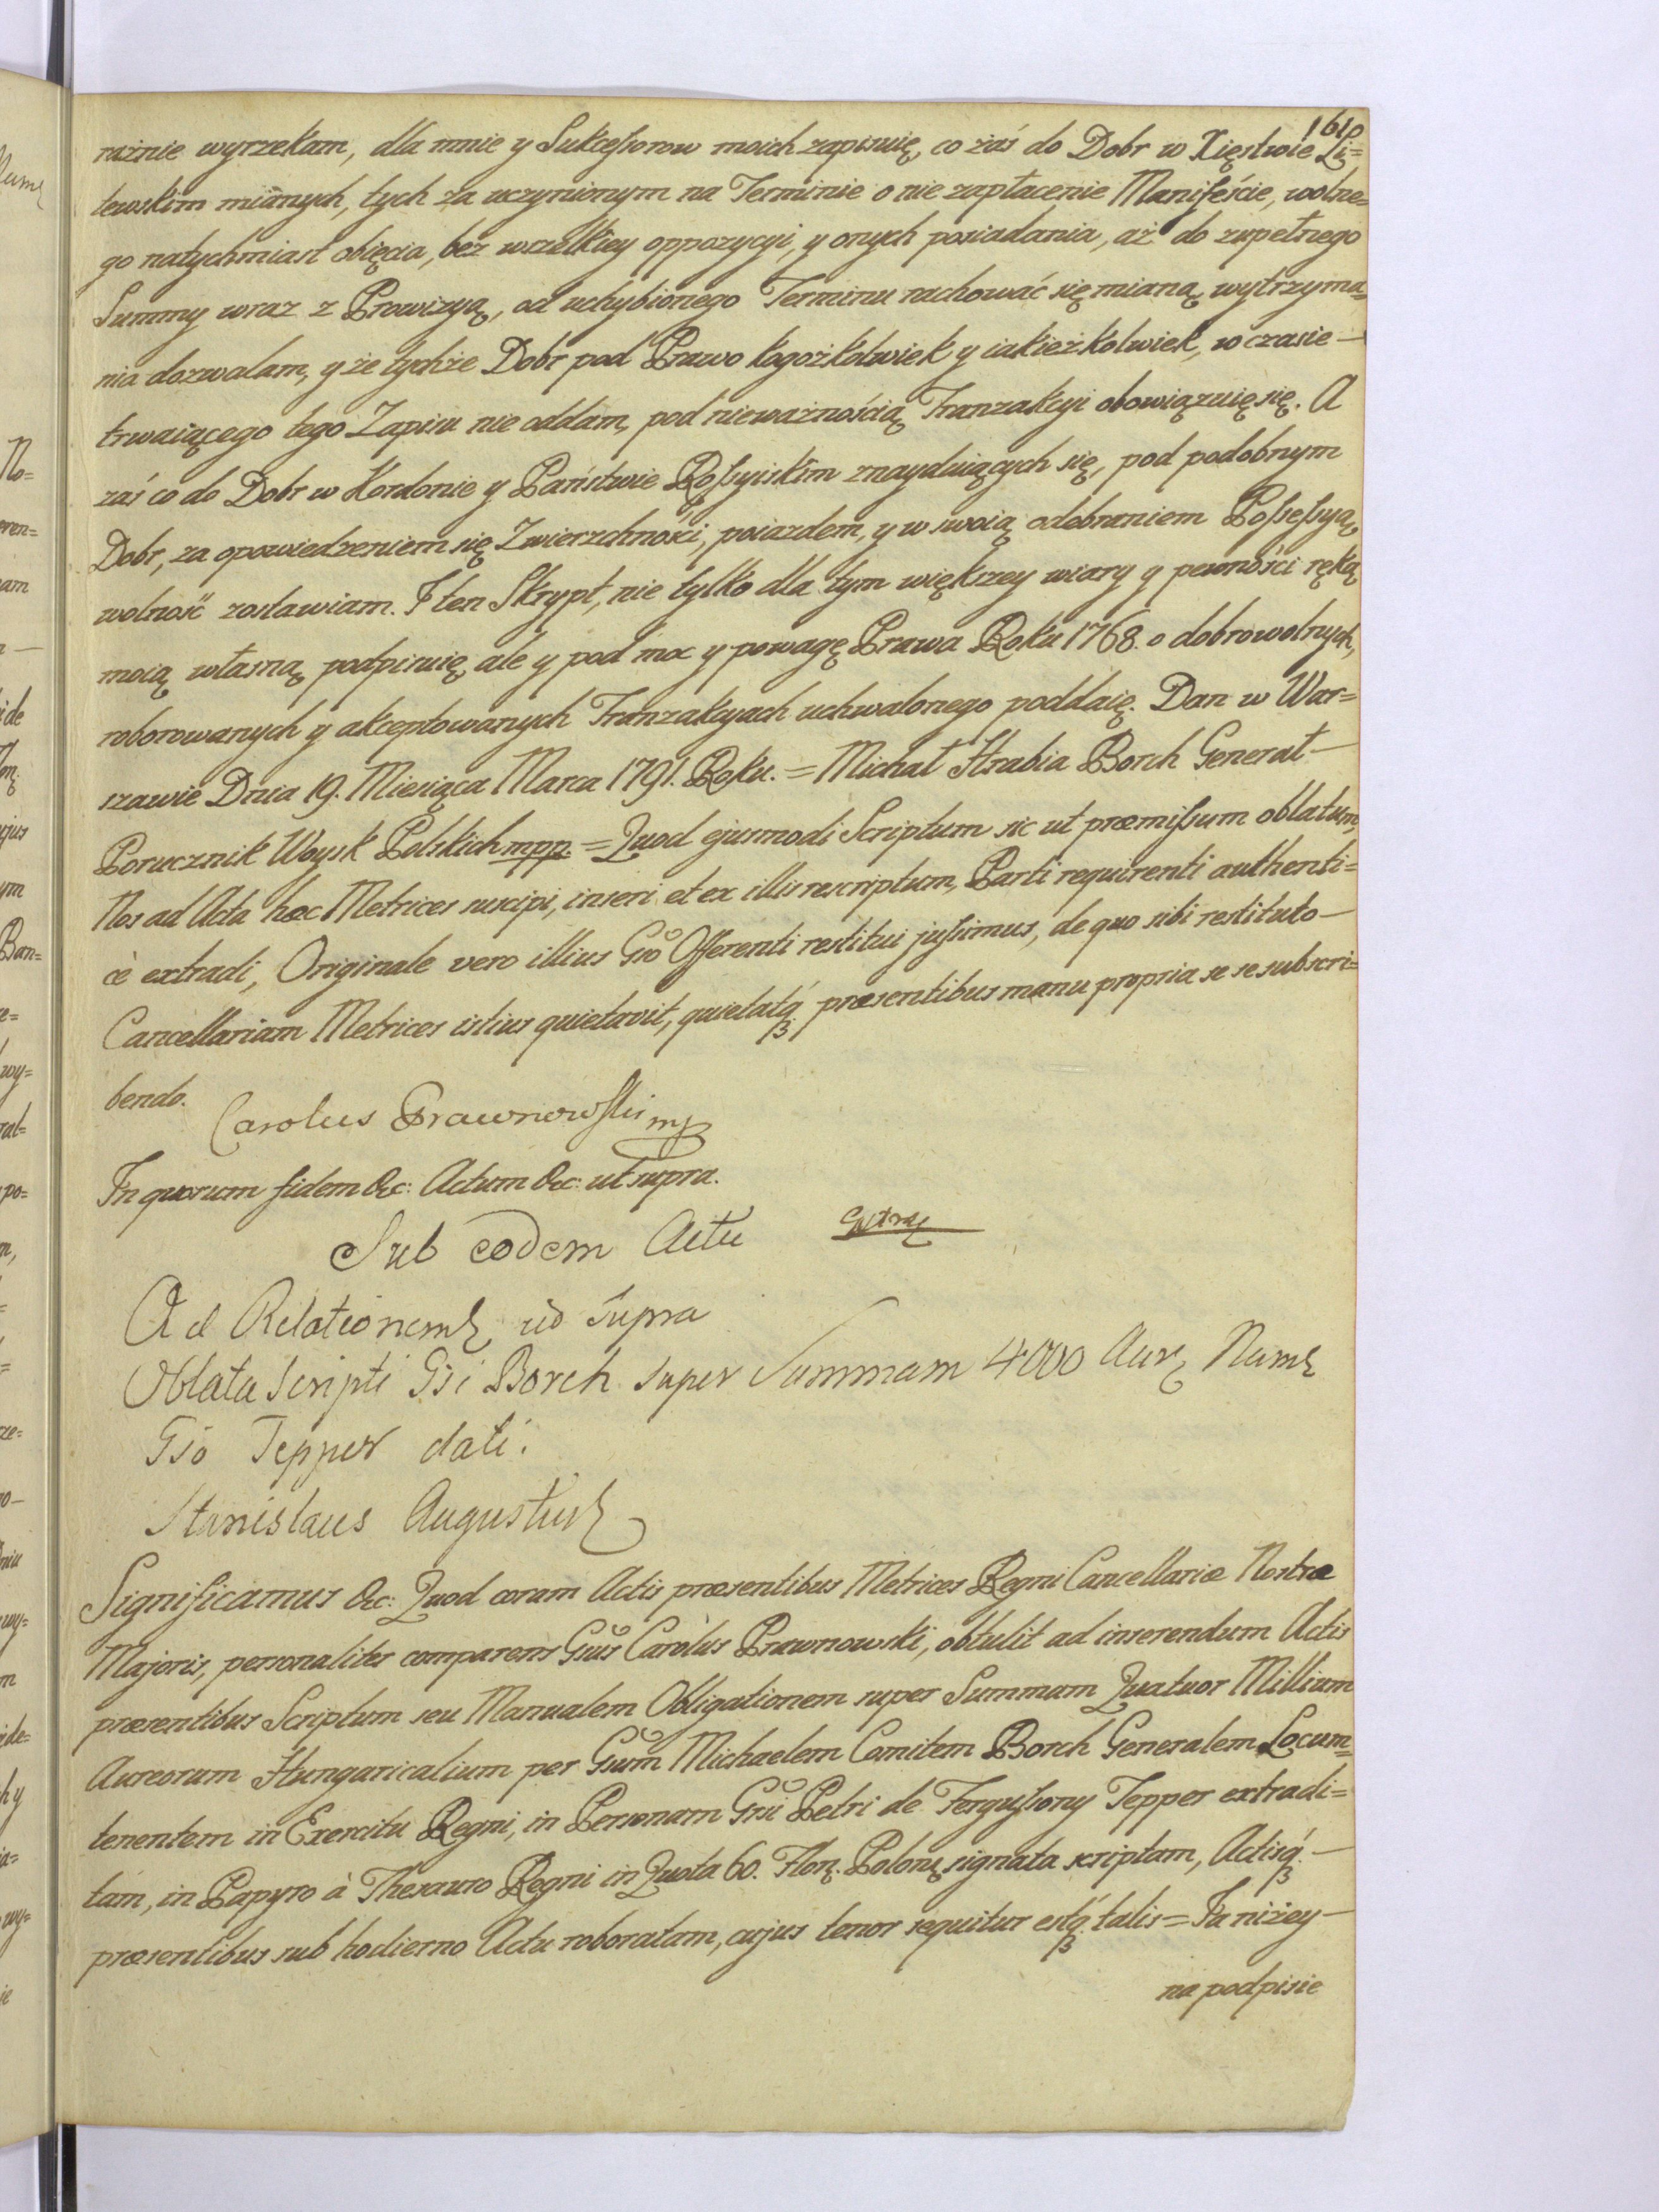 161
raźnie wyrzekam, dla mnie y Sukceſsorow moich zapisuię, co zaś do Dobr w Xięstwie Li=
tewskim mianych, tych za uczynionym na Terminie o nie zapłacenie Manifeście, wolne=
go natychmiast obięcia, bez wszelkiey oppozycyi, y onych posiadania, aż do zupełnego
Summy wraz z Prowizyą, od uchybionego Terminu rachować się mianą, wytrzyma=
nia dozwalam, y że tychże Dobr pod Prawo kogożkolwiek y iakieżkolwiek, w czasie —
trwaiącego tego Zapisu nie oddam, pod nieważnością Tranzakcyi obowiązuię się. A
zaś co do Dobr w Kordonie y Państwie Roſsyiskim znayduiących się, pod podobnym
Dobr, za opowiedzeniem się Zwierzchności, poiazdem, y w swoią odebraniem Poſseſsyą,
wolność zostawiam. I ten Skrypt, nie tylko dla tym większey wiary y pewności ręką
moią własną podpisuię, ale y pod moc y powagę Prawa Roku 1768. o dobrowolnych,
roborowanych y akceptowanych Tranzakcyach uchwalonego poddaię. Dan w War=
szawie Dnia 19. Miesiąca Marca 1791. Roku. = Michał Hrabia Borch Generał —
Porucznik Woysk Polskich mpp. = Quod ejusmodi Scriptum sic ut præmiſsum oblatum,
Nos ad Acta hæc Metrices suscipi, inseri et ex illis rescriptum, Parti requirenti authenti=
cè extradi, Originale vero illius Gso Offerenti restitui juſsimus, de quo sibi restituto —
Cancellariam Metrices istius quietavit, quietatq́ꝫ præsentibus manu propria se se subscri=
bendo.
Carolus Prawnowski mp
In quorum fidem &c: Actum &c: ut supra.
Sub eodem Actu
Ad Relationem ut supra
Oblata Scripti Gsi Borch super Summam 4000 Aur. Num.
Gso Tepper dati.
Stanislaus Augustus
Significamus &c: Quod coram Actis præsentibus Metrices Regni Cancellariæ Nostræ
Majoris, personaliter comparens Gsus Carolus Prawnowski, obtulit ad inserendum Actis
præsentibus Scriptum seu Manualem Obligationem super Summam Quatuor Millium
Aureorum Hungaricalium per Gsum Michaelem Comitem Borch Generalem Locum=
tenentem in Exercitu Regni, in Personam Gsi Petri de Ferguſsony Tepper extradi=
tam, in Papyro à Thesauro Regni in Quota 60. Flor. Polon. signata scriptam, Actisq́ꝫ —
præsentibus sub hodierno Actu roboratam, cujus tenor sequitur estq́ꝫ talis = Ja niżey —
na podpisie